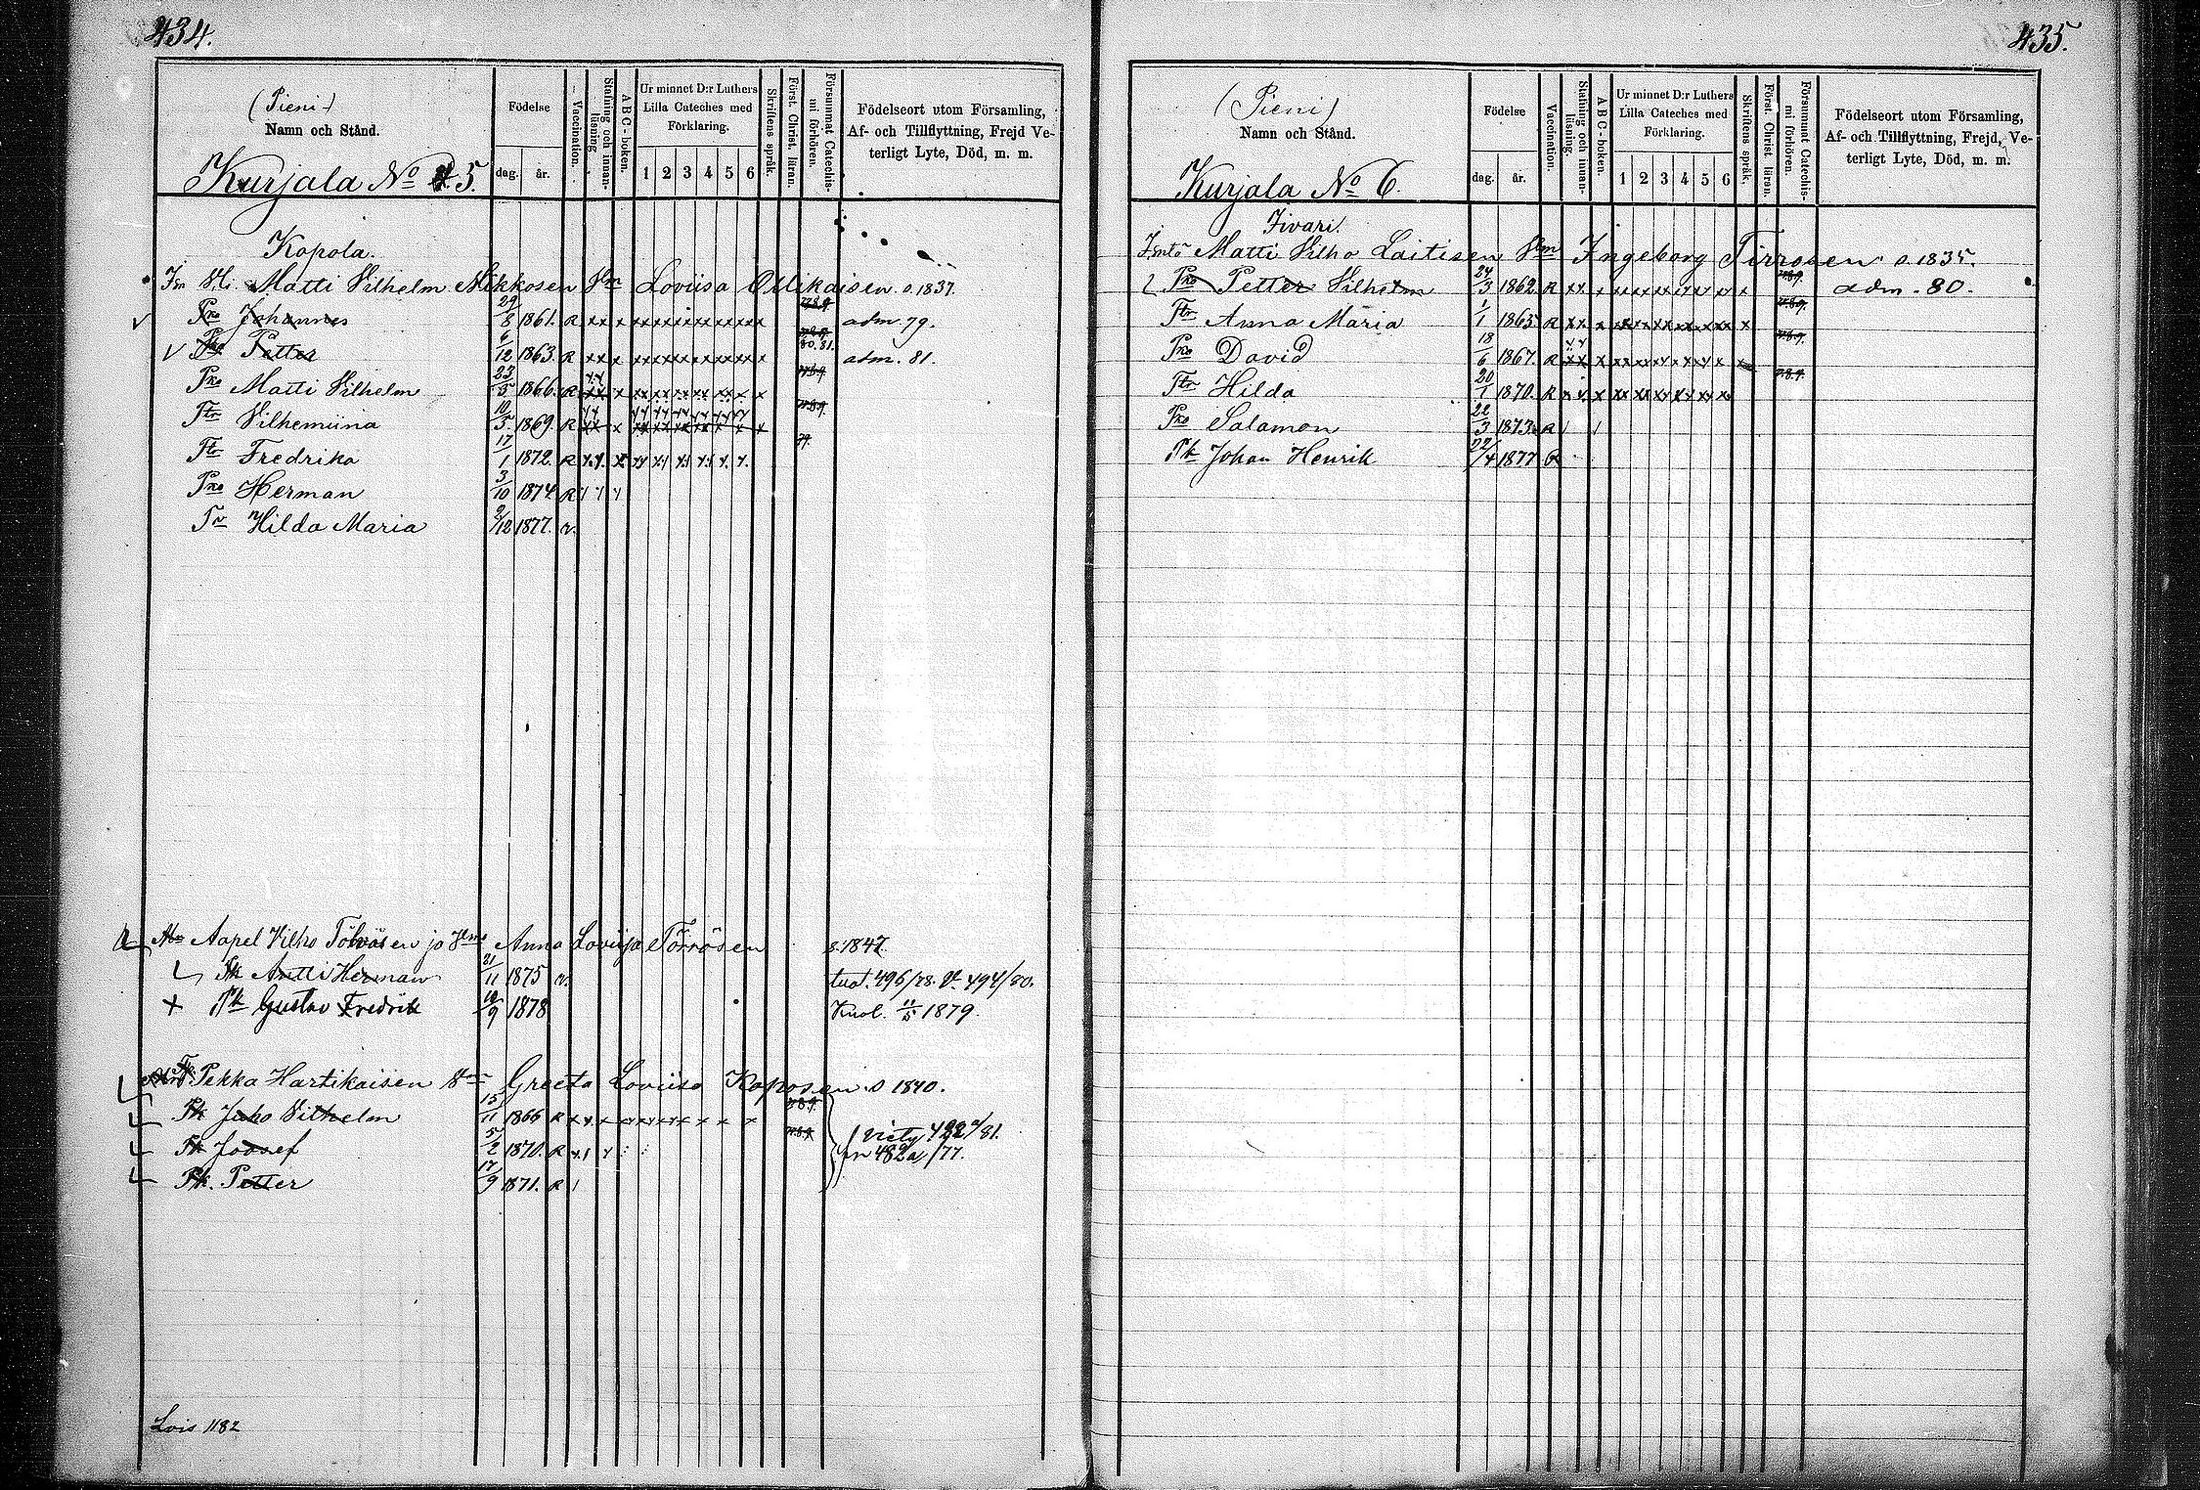 434.
(Pieni)
Namn och Stånd.
Kurjala No 5.
Födelse
dag. år.
Vaccination.
Stafning och innan-läsning
ABC-boken.
Ur minnet D:r Luthers
Lilla Cateches med
Förklaring.
1 2 3 4 5 6
Skriftens språk.
Först. Christ. läran.
Försummat Catechis-mi förhören.
Födelseort utom Församling,
Af- och Tillflyttning, Frejd Ve-
terligt Lyte, Död, m. m.
Kopola.
Isn Vli Matti Vilhelm Mikkosen Vm Loviisa Ollikaisen s. 1837.
Pko Johannes 29/8 1861. R xx x xxxxxxxxxxxx x adm 79.
Pko Petter 6/12 1863. R xx x xxxxxxxxxxxx x 80.81. adm. 81.
Pko Matti Vilhelm 23/5 1866. R xx x
Ttr Vilhemiina 10/5 1869. R xx x
Ttr Fredrika 17/1 1872. R
Pko Herman 3/10 1874 R
Tr Hilda Maria 2/12 1877. v.
Aapel Vilho Tolväsen ja Anna Loviisa Törrösen s. 1847.
Pk Antti Herman 21/11 1875 v. tuot. 496/78. V. 494/80.
+ Pk Gustav Fredrik 10/9 1878 Kuol. 11/5 1879.
Pekka Hartikaisen Vm Greeta Loviisa Koposen s 1840.
Pk Juho Vilhelm 15/11 1866 R
Pk Joosef 5/2 1870. R viety 422/81.
Pk. Petter 17/9 1871. R 482a/77.
Lois 1182
435.
(Pieni)
Namn och Stånd.
Kurjala No 6.
Födelse
dag. år.
Vaccination.
Stafning och innan-läsning.
ABC-boken.
Ur minnet D:r Luthers
Lilla Cateches med
Förklaring.
1 2 3 4 5 6
Skriftens språk.
Först. Christ läran.
Försummat Catechis-mi förhören.
Födelseort utom Församling,
Af- och Tillflyttning, Frejd, Ve-
terligt Lyte, Död, m. m.
Iivari.
Isntä Matti Vilho Laitisen Vm Ingeborg Tirrosen s. 1835.
Pko Petter Vilhelm 24/3 1862. R xx x xxxxxxxxxxxx x adm. 80.
Ttr Anna Maria 1/1 1865. R xx x xxxxxxxxxxxx x
Pko David 18/6 1867. R xx x
Ttr Hilda 20/1 1870. R
Pko Salamon 22/3 1873. R
Pk Johan Henrik 22/4 1877 R